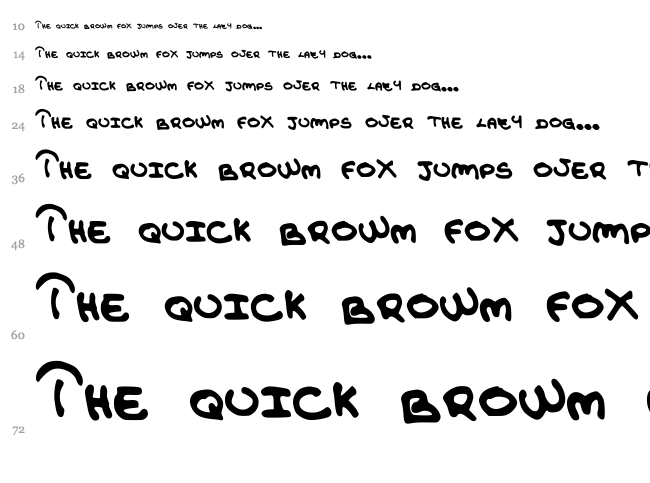 10 THE QUICK BROWN FOX JUMPS OVER THE LAZY DOG...
14 THE QUICK BROWN FOX JUMPS OVER THE LAZY DOG...
18 THE QUICK BROWN FOX JUMPS OVER THE LAZY DOG...
24 THE QUICK BROWN FOX JUMPS OVER THE LAZY DOG...
36 THE QUICK BROWN FOX JUMPS OVER T
48 THE QUICK BROWN FOX JUMP
60 THE QUICK BROWN FOX
72 THE QUICK BROWN